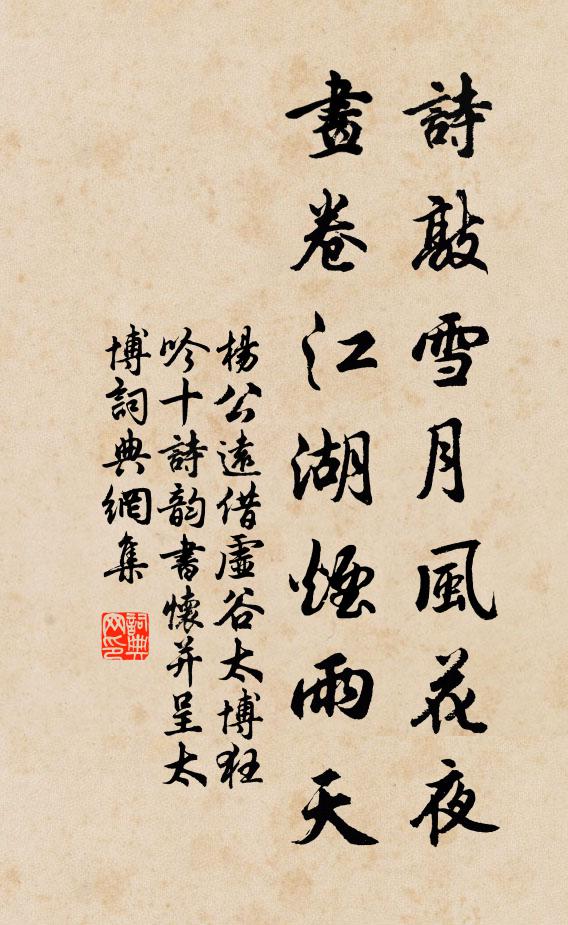 詩敲雪月風花夜
畫卷江湖煙雨天
楊公遠借虛谷太博狂
吟十詩韵書懷并呈太
博詞典網集
詞典
网印